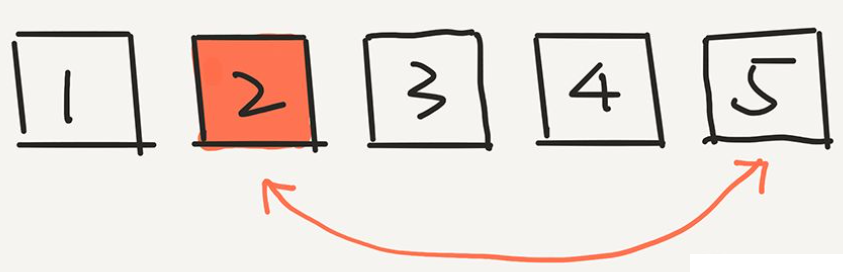 1 2 3 4 5